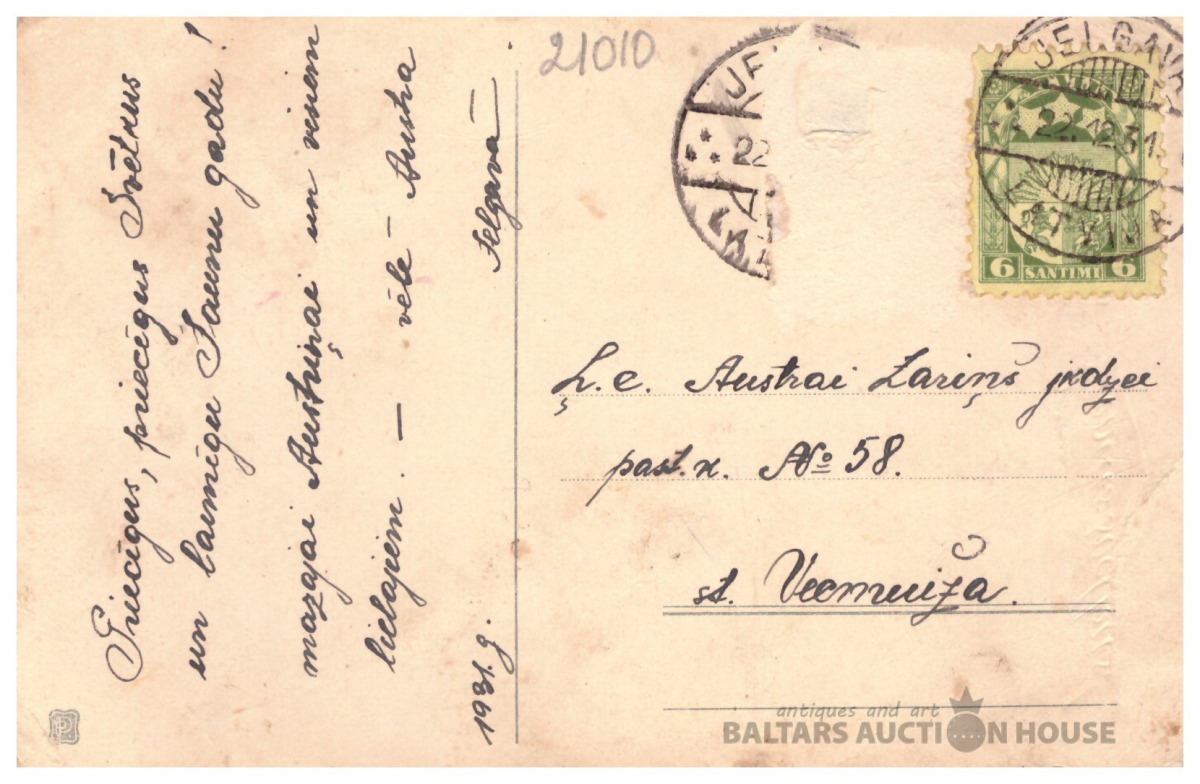 Priecīgus, priecīgus Svētkus
un laimīgu Jaunu gadu!
mazajai Austriņai un visiem
lielajiem. — vēlē — Austra
1931. g.
Jelgavā
21010
JE
JELGAVA
22.12.31.
LATVIJA
LATVIJA
6 SANTIMI 6
Ļ. c. Austrai Lariņš jkdzei
past. n. № 58.
st. Vecmuiža.
antiques and art
BALTARS AUCTION HOUSE